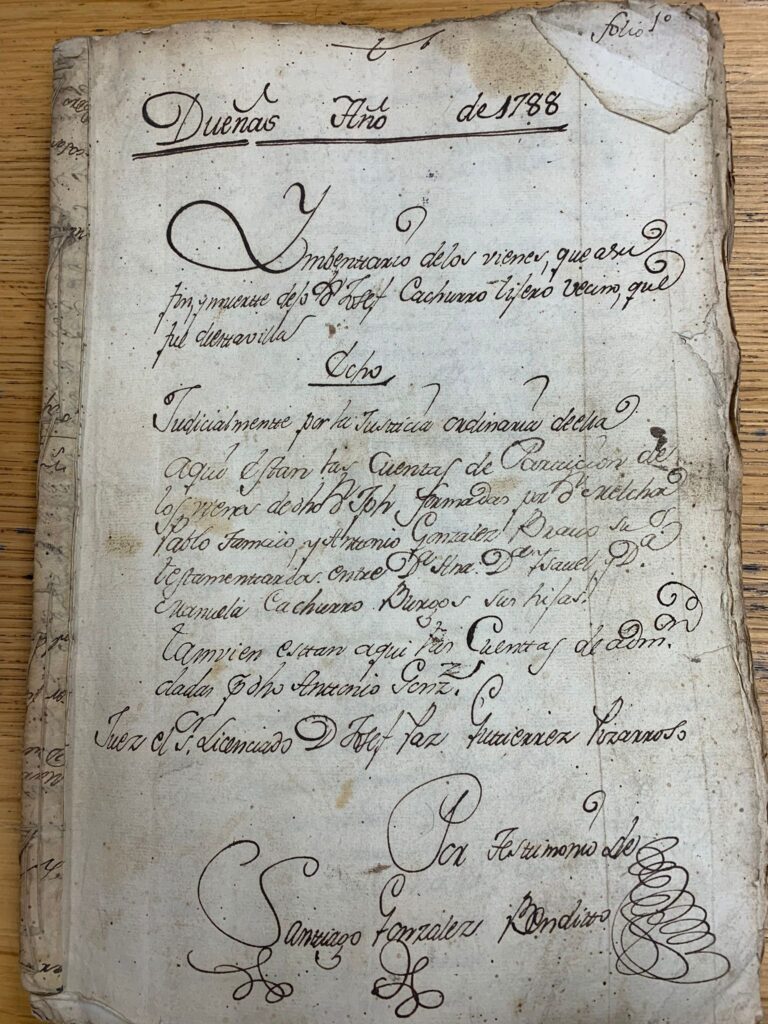 folio 1º
Dueñas Año de 1788
Ymbentario de los vienes, que a su
fin, y muerte dejo Dn Josef Cachurro Tisero vecino, que
fue de esta villa
Echo
Judicialmente por la Justicia ordinaria de ella
aqui estan las Cuentas de Particion de
los vienes de dho Dn Jph formadas por Dn Melchor
Pablo y Antonio Gonzalez Bravo sus
testamentarios entre Da Ana Da Ysavel y Da
Manuela Cachurro Burgos sus hijas.
tanvien esttan aqui las Cuentas de admon
dadas por dho Anttonio Gonzs.
Juez el Sr. Licenciado Dn Josef Paz Gutierrez Pizarroso
Por testimonio de
Santiago Gonzalez